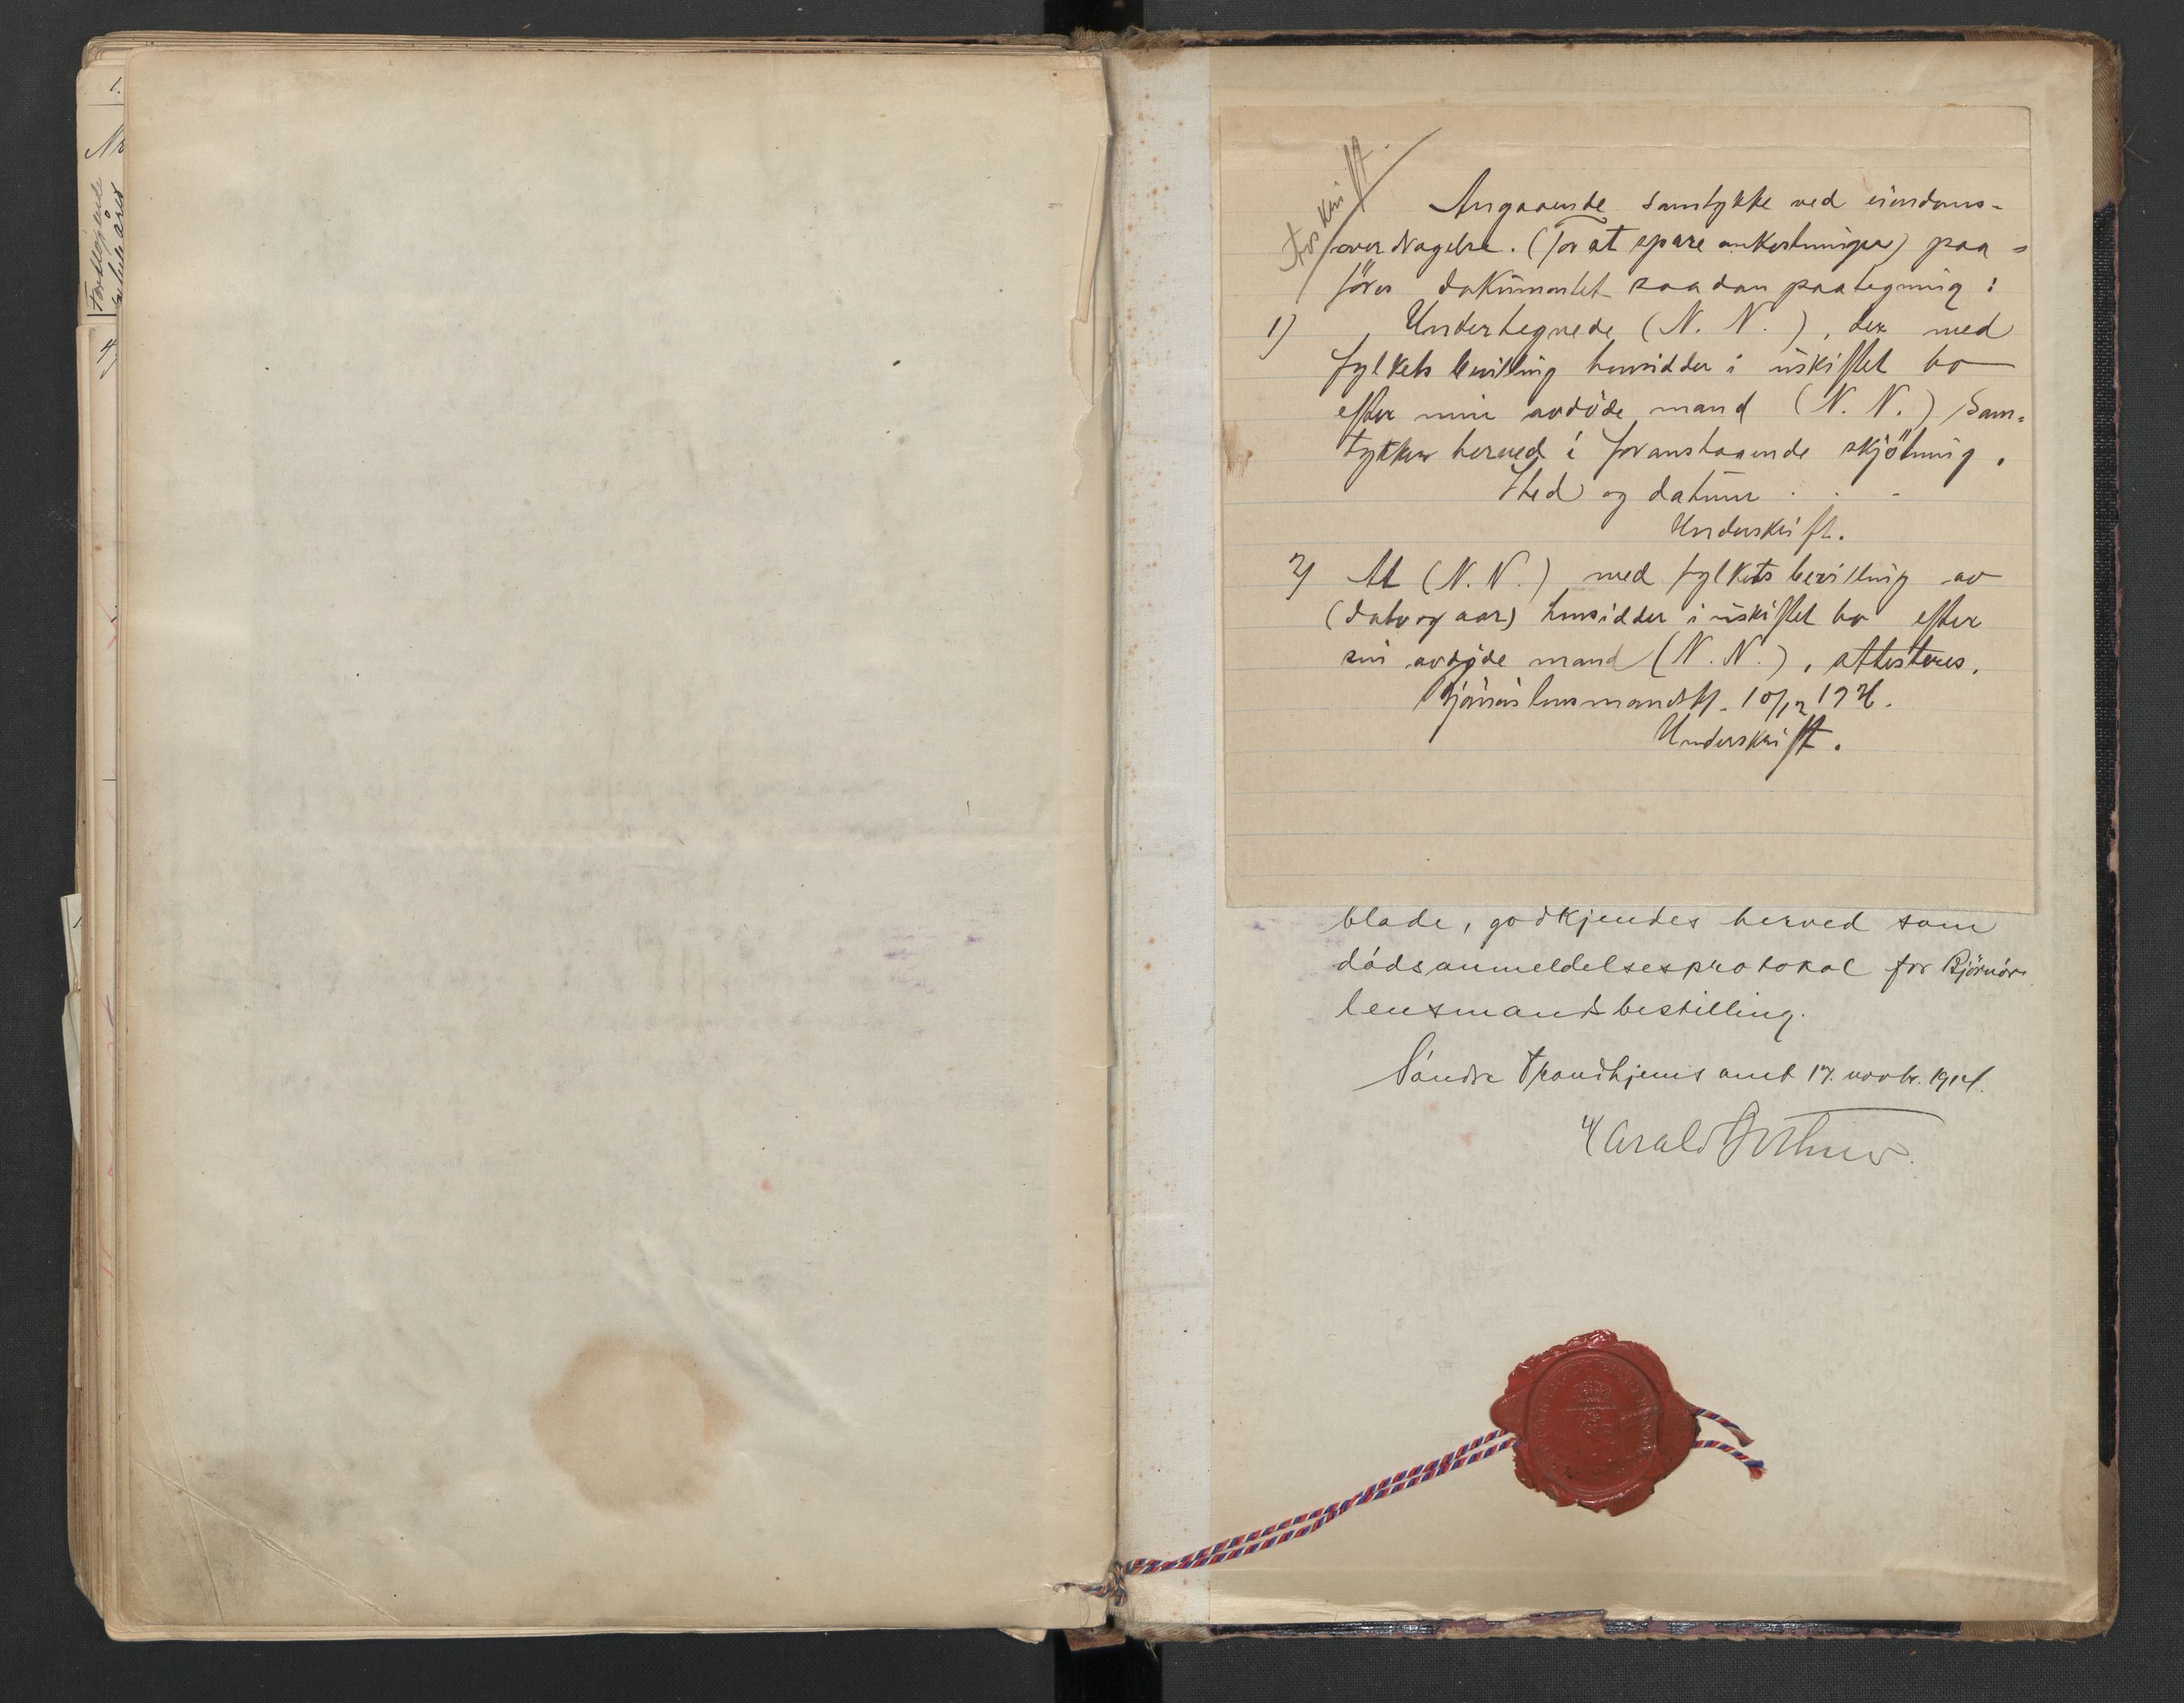 1.
Nr
Fortløpende
for hele året
4,
Forskrift.
Angaaende samtykke ved eiendoms-
overdragelse. (For at spare omkostninger) paa-
føres dokumentet saadan paategning:
1) Undertegnede (N. N.), der med
fylkets bevilling hensidder i uskiftet bo
efter min avdøde mand (N. N.) Sam-
tykker herved i foranstaaende skjøtning.
Sted og datum . . .
Underskrift.
2) At (N. N.) med fylkets bevilling av
(dato og aar) hensidder i uskiftet bo efter
sin avdøde mand (N. N.), attesteres.
Bjørnør lensmandskt. 10/12 19
Underskrift.
blade, godkjendes herved som
dødsanmeldelsesprotokol for Bjørnør
lensmandsbestilling.
Søndre Trondhjems amt 17. novbr. 1914.
Harald Bothner.